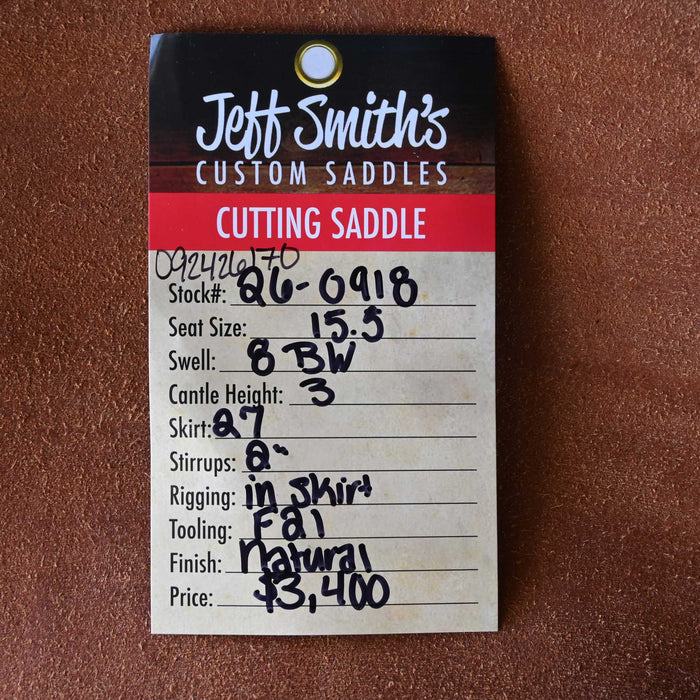 Jeff Smith's
CUSTOM SADDLES
CUTTING SADDLE
092426170
Stock#: 26-0918
Seat Size: 15.5
Swell: 8 BW
Cantle Height: 3
Skirt: 27
Stirrups: 2"
Rigging: in skirt
Tooling: F21
Finish: natural
Price: $3,400